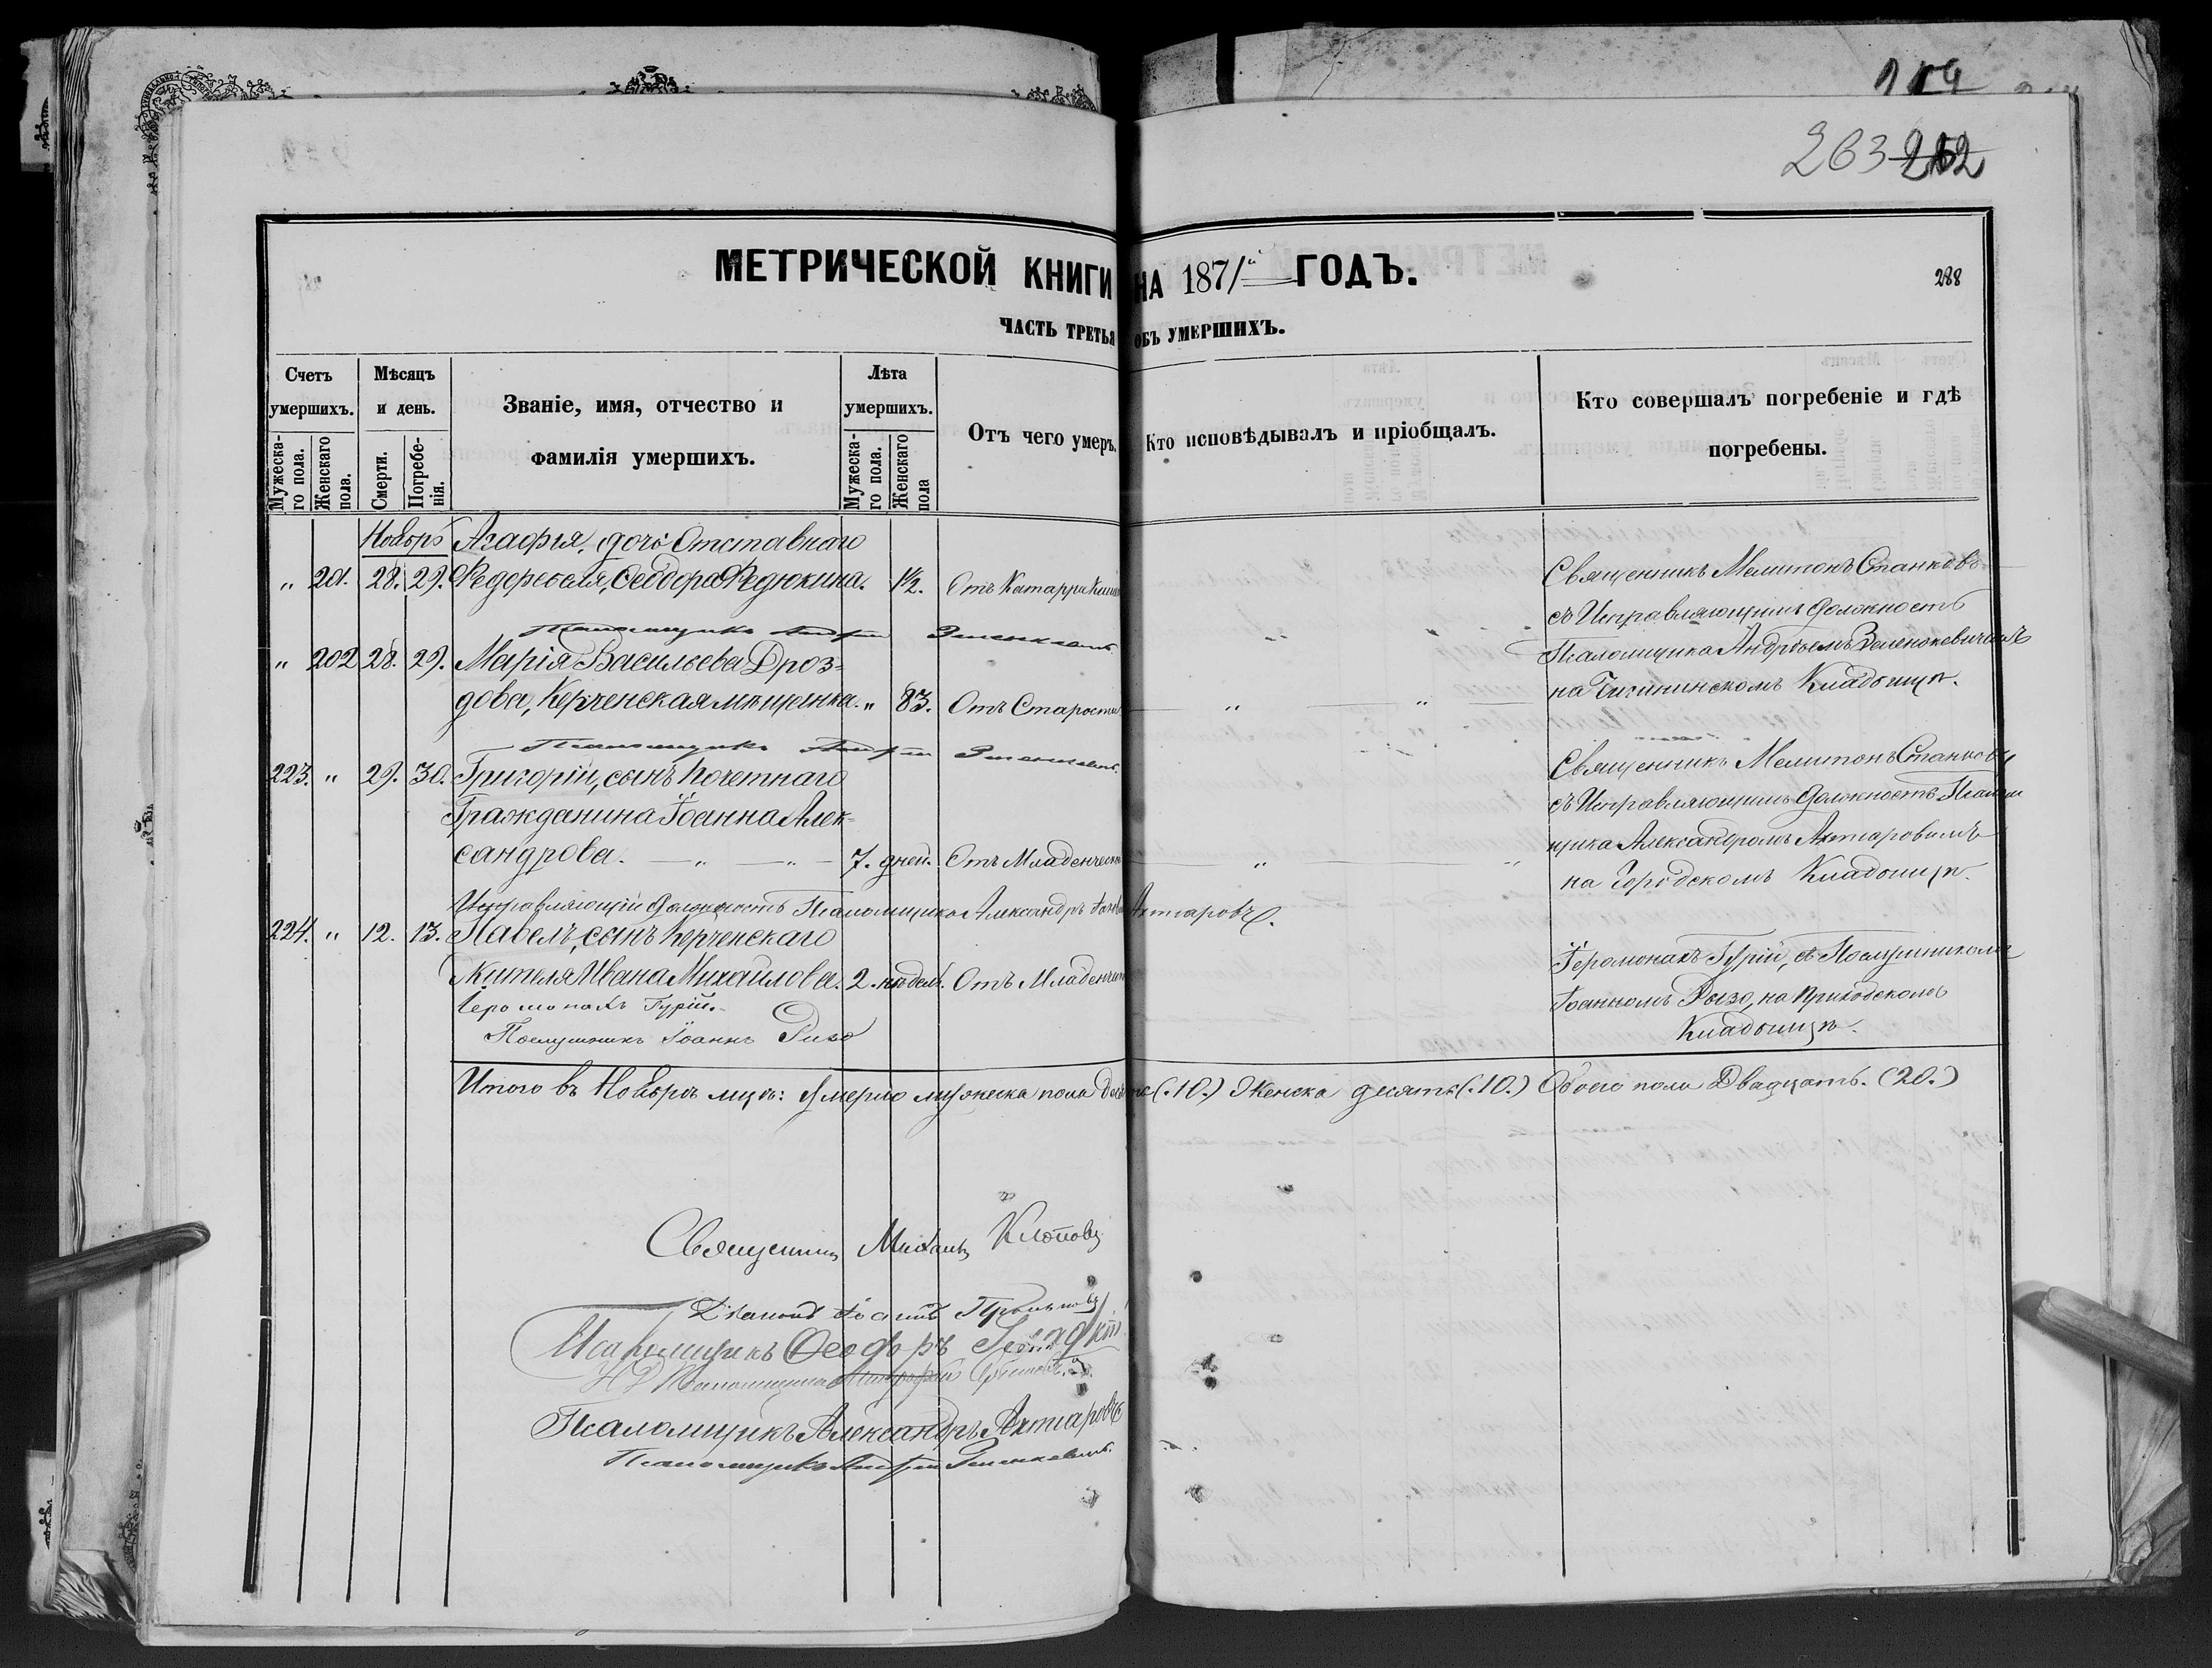 263 212
МЕТРИЧЕСКОЙ КНИГИ НА 1871й ГОДЪ.
288
ЧАСТЬ ТРЕТЬЯ ОБЪ УМЕРШИХЪ.
Счетъ умершихъ.
Мужеска-го пола.
Женскаго пола.
Мѣсяцъ и день.
Смерти.
Погребе-нія.
Званіе, имя, отчество и фамилія умершихъ.
Лѣта умершихъ.
Мужеска-го пола.
Женскаго пола
Отъ чего умеръ.
Кто исповѣдывалъ и пріобщалъ.
Кто совершалъ погребеніе и гдѣ погребены.
Ноябрь Агафія, дочь Отставнаго
„ 201. 28. 29. Феодора Федюкина. 1½. Отъ
Священникъ Мелитонъ Станковъ
съ Исправляющимъ должность
Псаломщика Андреемъ Зеленкевичемъ
на кладбищѣ.
Псаломщикъ Андрей
„ 202 28. 29. Марія Васильева Дроз-
дова, Керченская мѣщанка. „ 83. Отъ Старости „ „
Псаломщикъ Андрей
223. „ 29. 30. Григорій, сынъ Почетнаго
Гражданина Іоанна Алек-
сандрова. 7. дней. Отъ Младенческой „ „
Священникъ Мелитонъ Станковъ
съ Исправляющимъ должность Псалом
щика Александромъ Ахтаровымъ
на Городскомъ Кладбищѣ.
Исправляющій должность Псаломщика Александръ Ахтаровъ.
224. „ 12. 13. Павелъ, сынъ Керченскаго
Жителя Ивана Михайлова. 2. недѣль. Отъ Младенческ
Іеромонахъ Гурій, съ Послушникомъ
Іоанномъ Ризо, на Приходскомъ
Кладбищѣ.
Іеромонахъ Гурій.
Послушникъ Іоаннъ Ризо
Итого въ Ноябрѣ мцѣ: Умерло мужеска пола десять (.10.) Женска десять (.10.) Обоего пола Двадцать. (20.)
Священникъ Михаилъ Клоповъ
Діаконъ Іоаннъ
Псаломщикъ Ѳеодоръ
И Д Псаломщика
Псаломщикъ Александръ Ахтаровъ
Псаломщикъ Андрей Зеленкевичъ.